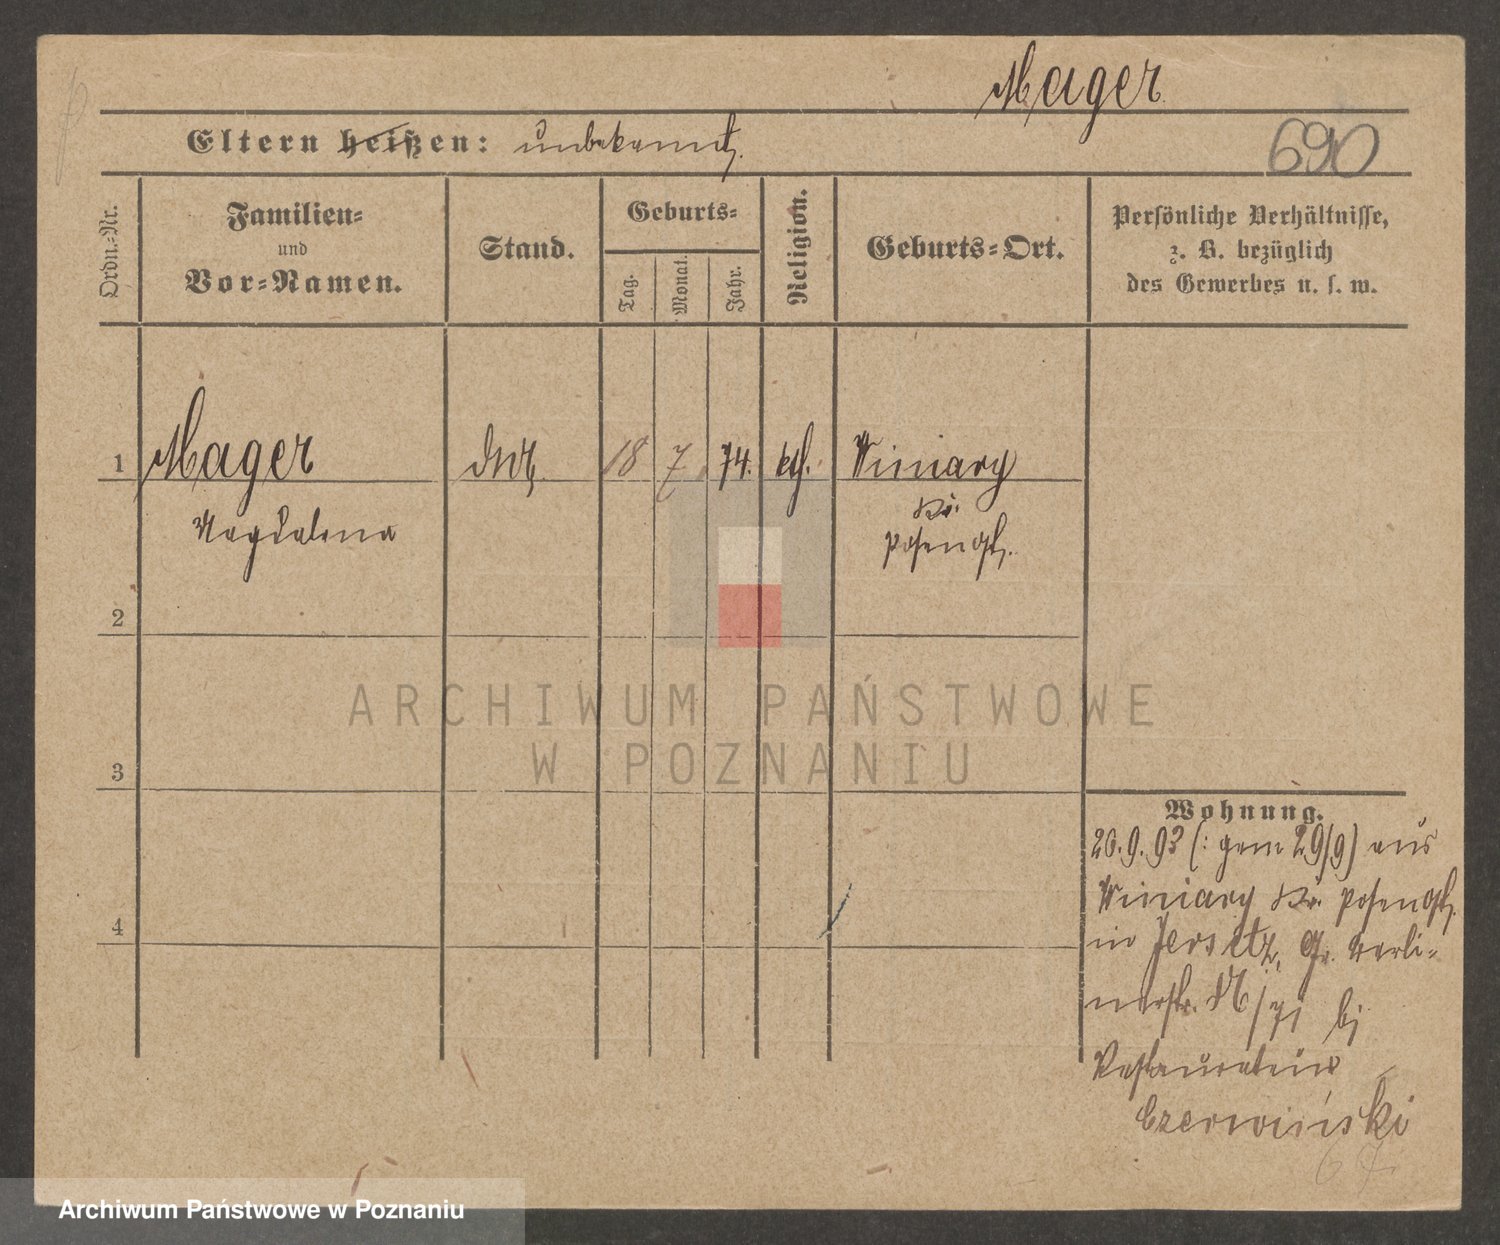 Mager
Eltern heißen: unbekannt.
690
Ordn.-Nr.
Familien-
und
Vor-Namen.
Stand.
Geburts-
Tag.
Monat.
Jahr.
Religion.
Geburts-Ort.
Persönliche Verhältnisse,
z. B. bezüglich
des Gewerbes u. s. w.
1 Mager 18 7 74. kth. Winiary
Magdalena
Kr.
Posen Ost.
2
ARCHIWUM PAŃSTWOWE
W POZNANIU
3
Wohnung.
20.9.93 (: gem 29/9) aus
4
Winiary Kr. Posen Ost.
in Jersitz, Gr. Berli-
nerstr. 71 bei
Restaurateur
Czerwiński
Archiwum Państwowe w Poznaniu